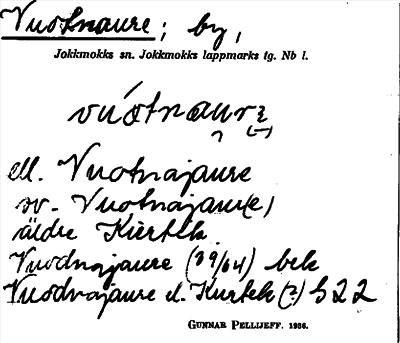 Vuotnaure; by,
Jokkmokks sn. Jokkmokks lappmarks tg. Nb l.
vúotnaurɛ
ell. Vuotnajaure
sv. Vuotnajaur(e)
äldre Kiertek
Vuodnajaure (39/64) bek
Vuodnajaure el. Kurtek (?) S 22
GUNNAR PELLIJEFF. 1936.